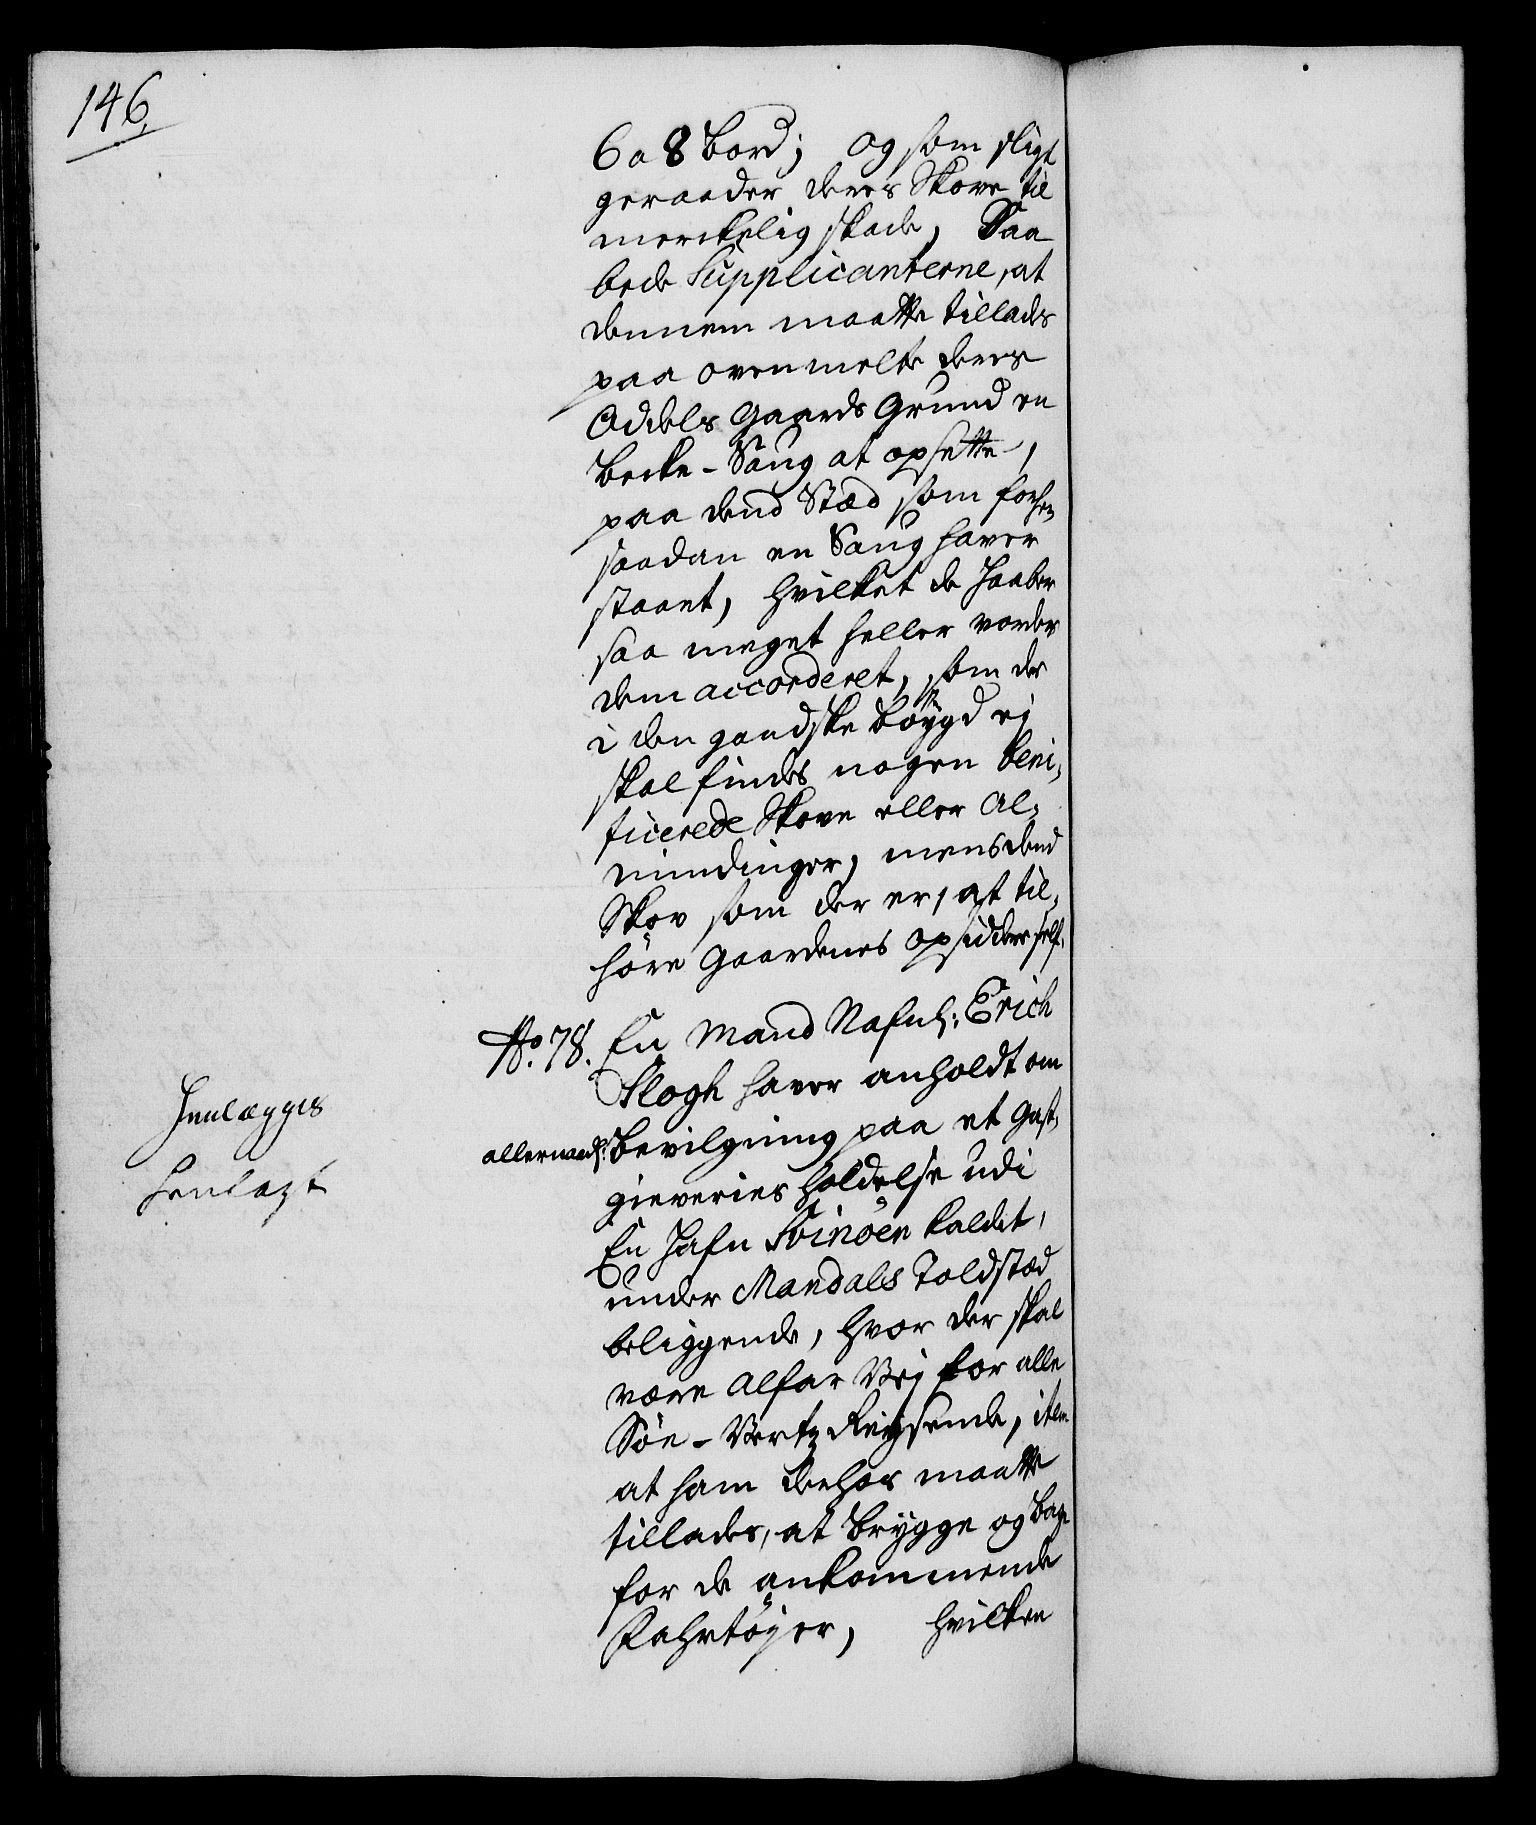 146.
6 a 8 bord; og som sligt
geraader deres Skove til
merckelig skade, Saa
bede Supplicanterne, at
dennem maatte tillades
paa ovenmelte deres
Oddels Gaards Grund en
Becke-Saug at opsette,
paa dend Stæd som forhen
saadan en Saug haver
staaet, hvilket de haaber
saa meget heller vorder
dem accorderet, som der
i den gandske Böygd ej
skal findes nogen beni,
ficerede Skove eller Al,
mindinger, mens dend
Skov som der er, at til,
höre Gaardenes opsiddere self.
No. 78. En Mand Nafnl: Erich
Plogh haver anholdt om
allernaad: Bevilgning paa et Gast,
gieveries holdelse udi
En Hafn Svinöen kaldet,
under Mandals Toldstæd
beliggende, hvor der skal
være Alfar Vej for alle
Söe-Verts Reysende, item
at ham derhos maatte
tillades, at brygge og bage
for de ankommende
Fahrtöjer, hvilken
Henlægges
Henlagt